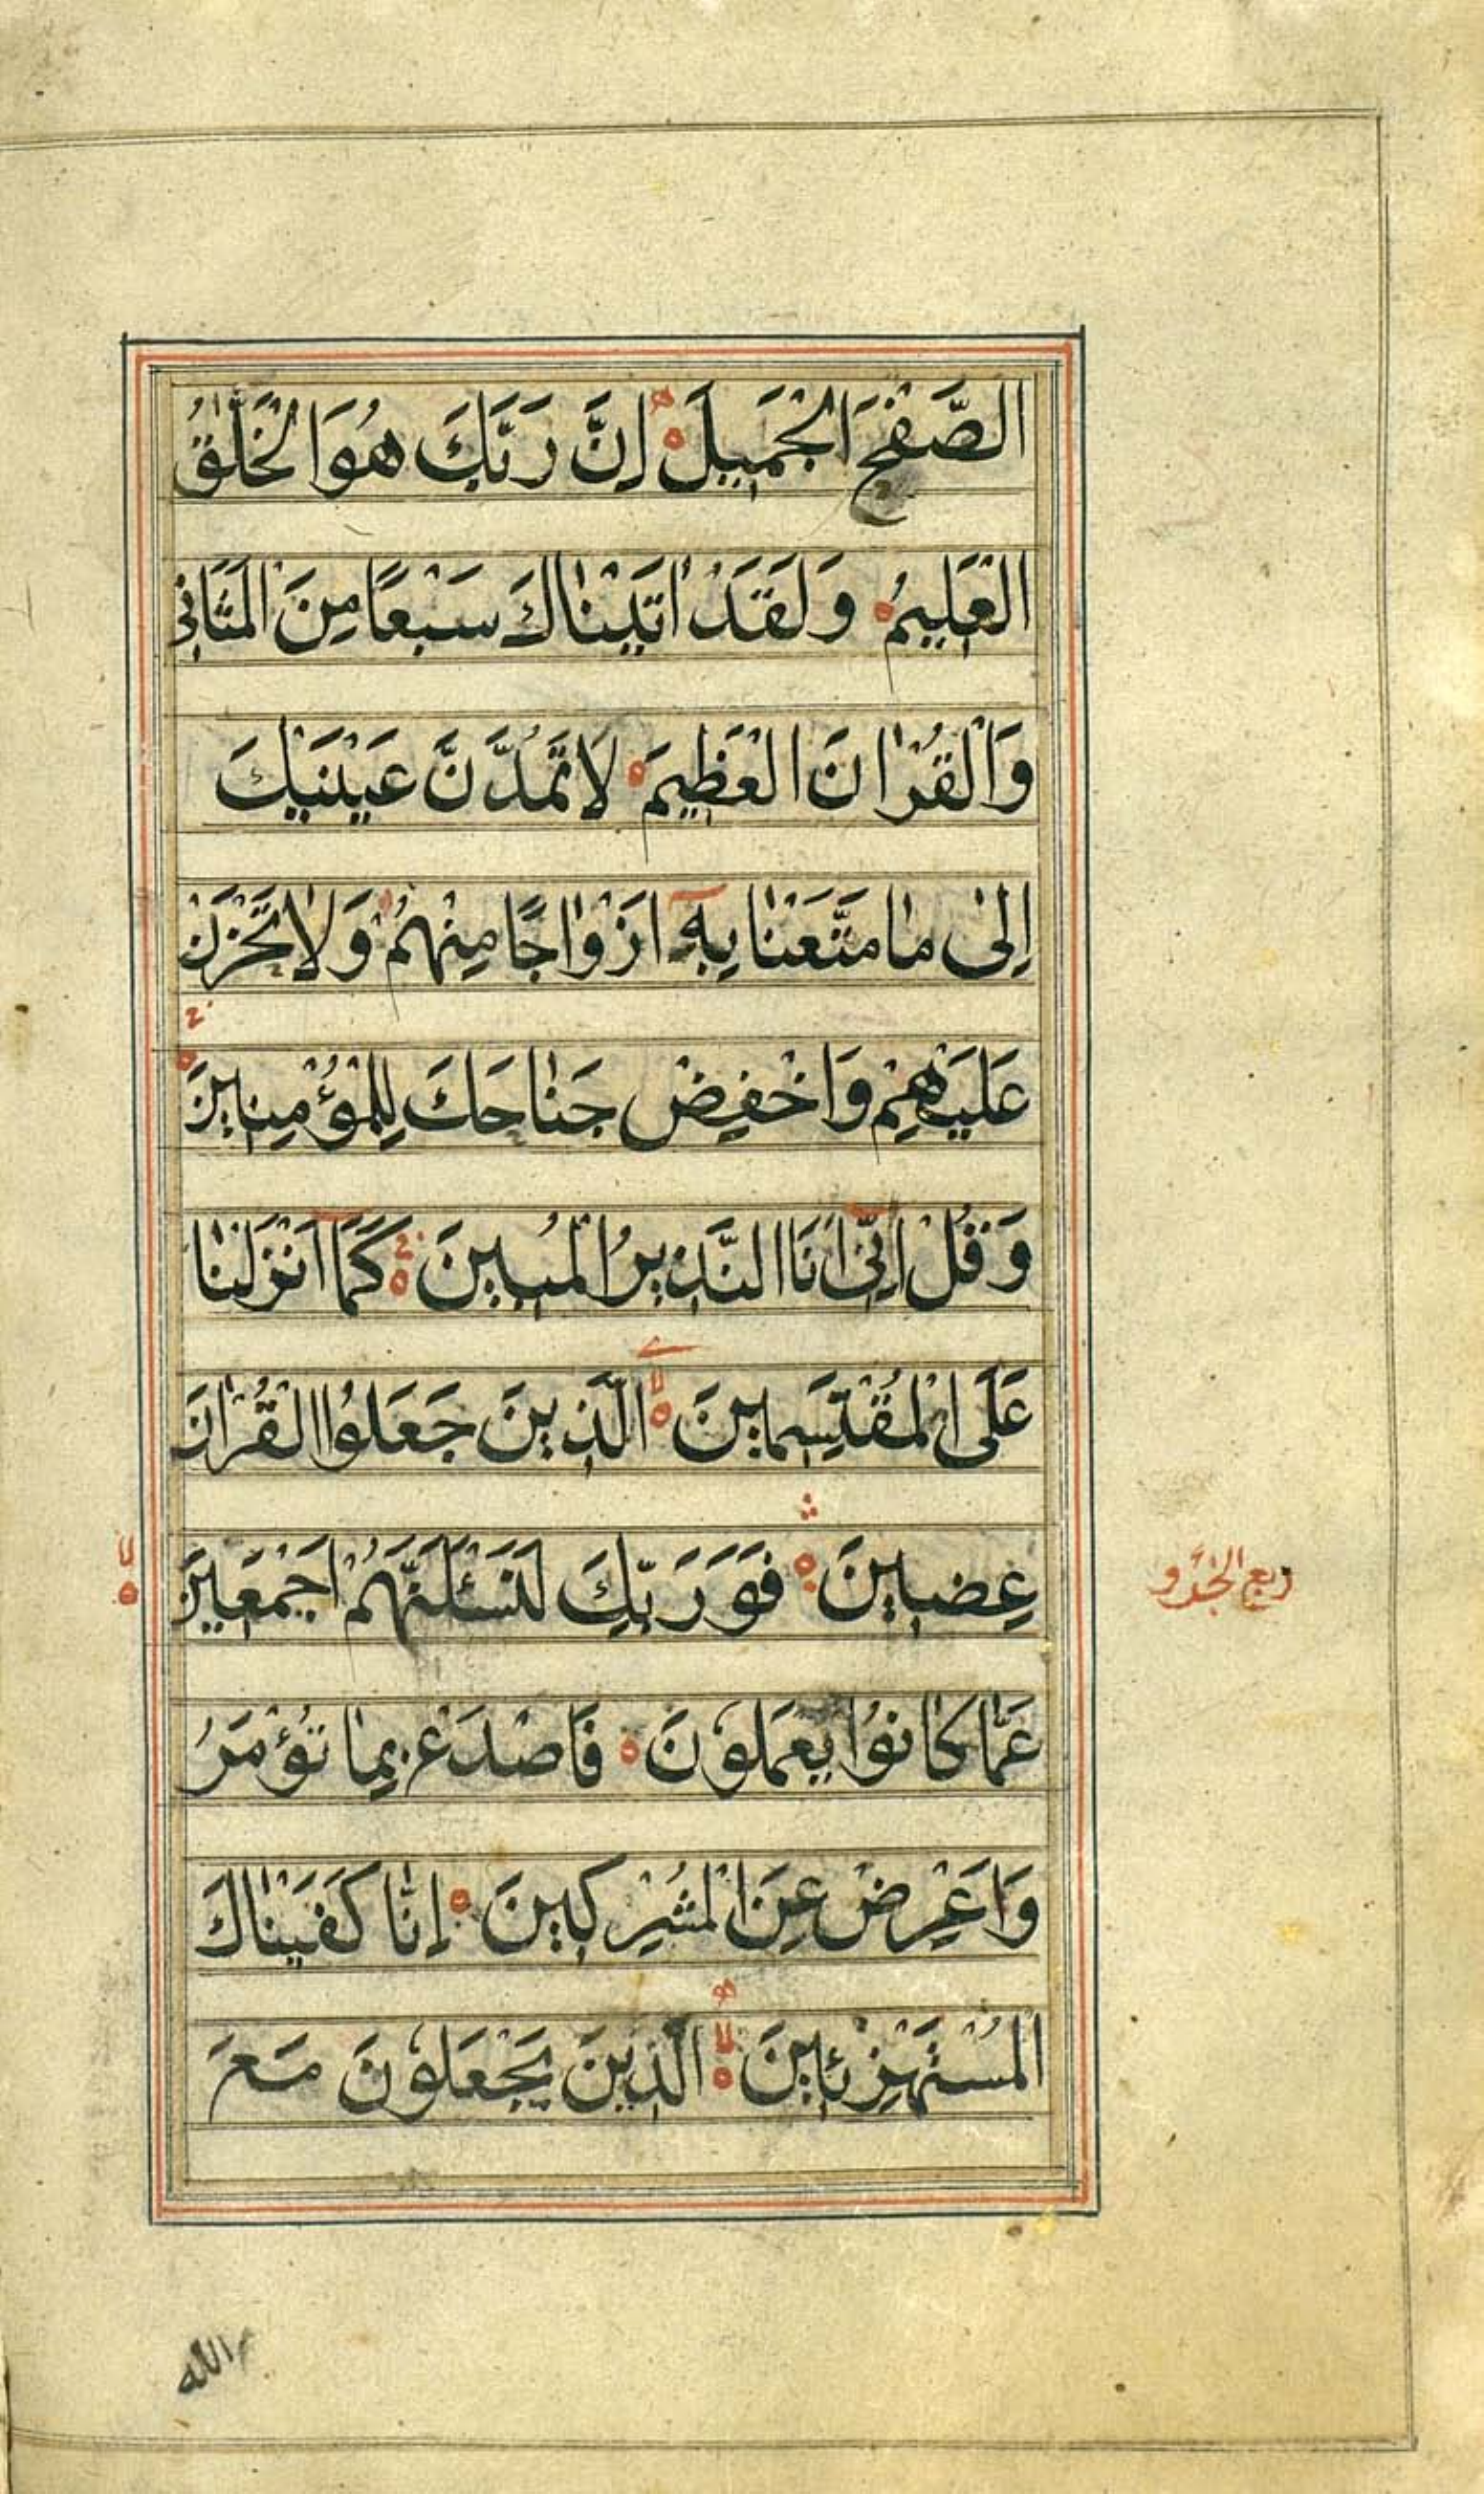 الصَّفْحَ الْجَمِيلَ إِنَّ رَبَّكَ هُوَ الْخَلّٰقُ
الْعَلِيمُ وَلَقَدْ اٰتَيْنٰاكَ سَبْعًا مِنَ الْمَثَانِي
وَالْقُرْاٰنَ الْعَظِيمَ لَا تَمُدَّنَّ عَيْنَيْكَ
إِلىٰ مٰا مَتَّعْنٰا بِهِٓ اَزْوٰاجًا مِنْهُمْ وَلٰا تَحْزَنْ
عَلَيْهِمْ وَاخْفِضْ جَنٰاحَكَ لِلْمُؤْمِنِينَ
وَقُلْ اِنِّيٓ اَنَا النَّذِيرُ الْمُبِينَ كَمَٓا اَنْزَلْنٰا
عَلَى الْمُقْتَسِمِينَ الَّذِينَ جَعَلُوا الْقُرْاٰنَ
عِضِينَ فَوَرَبِّكَ لَنَسْئَلَنَّهُمْ اَجْمَعِينَ
عَمّٰا كٰانُوا يَعْمَلُونَ فَاصْدَعْ بِمٰا تُؤْمَرُ
وَاَعْرِضْ عَنِ الْمُشْرِكِينَ اِنّٰا كَفَيْنٰاكَ
الْمُسْتَهْزِئِينَ الَّذِينَ يَجْعَلُونَ مَعَ
ربع الجزو
مع الله